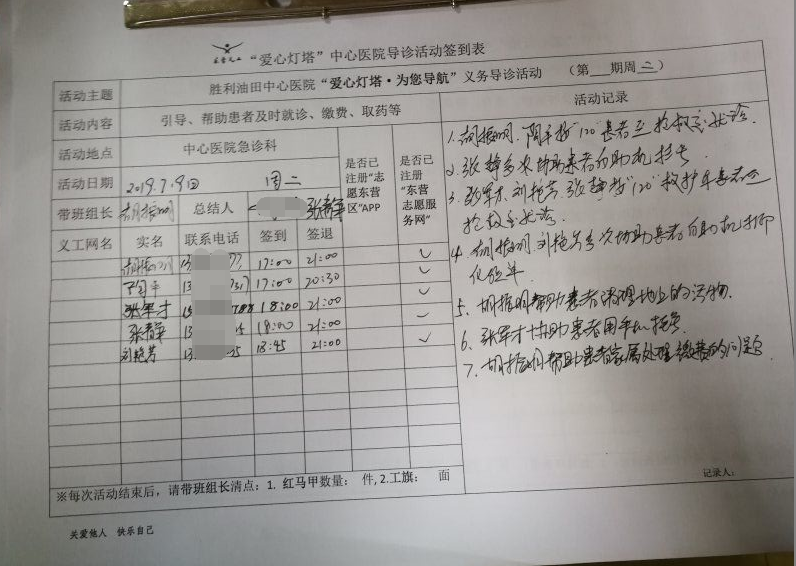 “爱心灯塔”中心医院导诊活动签到表
活动主题 胜利油田中心医院“爱心灯塔·为您导航”义务导诊活动 （第 期周二）
活动内容 引导、帮助患者及时就诊、缴费、取药等
活动地点 中心医院急诊科
活动日期 2019.7.9日 周二
带班组长 胡振明 总结人 张静
是否已注册“志愿东营区”APP
是否已注册“东营志愿服务网”
义工网名 实名 联系电话 签到 签退
胡振明 13 17:00 21:00 ✓
陶平 13 17:00 20:30 ✓
张军才 18:00 21:00 ✓
张静 13 18:00 21:00 ✓
刘艳芳 13 25 18:45 21:00 ✓
※每次活动结束后，请带班组长清点：1. 红马甲数量： 件, 2.工旗： 面
活动记录
1. 胡振明、陶平接“120”患者至抢救室就诊.
2. 张静多次协助患者自助机挂号.
3. 张军才、刘艳芳、张静接“120”救护车患者至
抢救室就诊.
4. 胡振明、刘艳芳多次协助患者自助机打印
化验单.
5. 胡振明帮助患者清理地上的污物.
6. 张军才协助患者用手机挂号.
7. 胡振明帮助患者家属处理缴费的问题.
记录人：
关爱他人 快乐自己